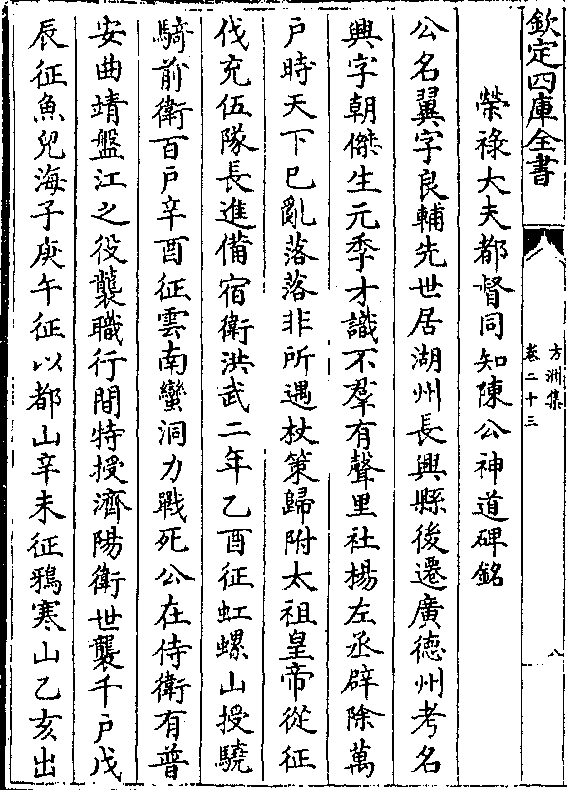 欽定四庫全書
方洲集
卷二十三
八
榮祿大夫都督同知陳公神道碑銘
公名翼字良輔先世居湖州長興縣後遷廣德州考名
興字朝傑生元季才識不羣有聲里社楊左丞辟除萬
戶時天下已亂落落非所遇杖策歸附太祖皇帝從征
伐充伍隊長進備宿衛洪武二年乙酉征虹螺山授驍
騎前衛百戶辛酉征雲南蠻洞力戰死公在侍衛有普
安曲靖盤江之役襲職行間特授濟陽衛世襲千戶戊
辰征魚兒海子庚午征以都山辛未征鴉寒山乙亥出